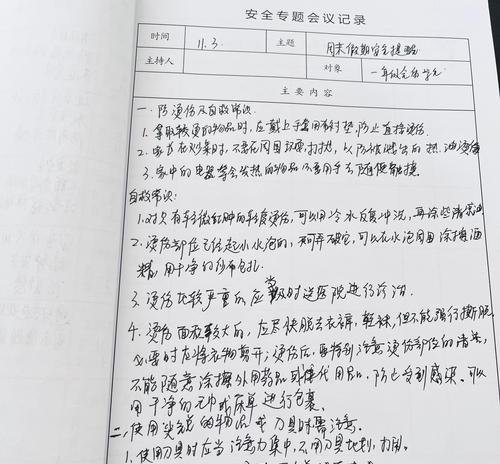 安全专题会议记录
时间 11.3. 主题 周末假期安全提醒
主持人 对象 一年级全体学生
主要内容
一、防烫伤及自救常识.
1. 拿取较烫的物品时，应戴上手套用有衬垫，防止直接烫伤.
2. 家长在炒菜时，不要在周围玩耍、打扰，以防被溅出的热油烫伤
3. 家中的电器等会发热的物品不要用手去随便触摸.
自救常识：
1. 对只有轻微红肿的轻度烫伤，可以用冷水反复冲洗，再涂些清凉油
2. 烫伤部位已经起小水泡的，不要弄破它，可以在水泡周围涂擦酒
精，用干净的纱布包扎.
3. 烫伤比较严重的，应当及时送医院进行诊治.
4. 烫伤面积较大的，应尽快脱去衣裤、鞋袜，但不能强行撕脱，
必要时应将衣物剪开；烫伤后，要特别注意烫伤部位的清洁，
不能随意涂擦外用药品或代用品，防止受到感染，可以
用干净的毛巾或床单进行包裹.
二、使用尖锐的物品或刀具时需注意.
1. 使用刀具时应当注意力集中，不用刀具比划、打闹.